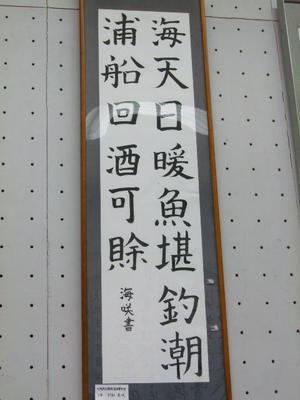 海天日暖魚堪釣潮
浦船回酒可賒
海咲書